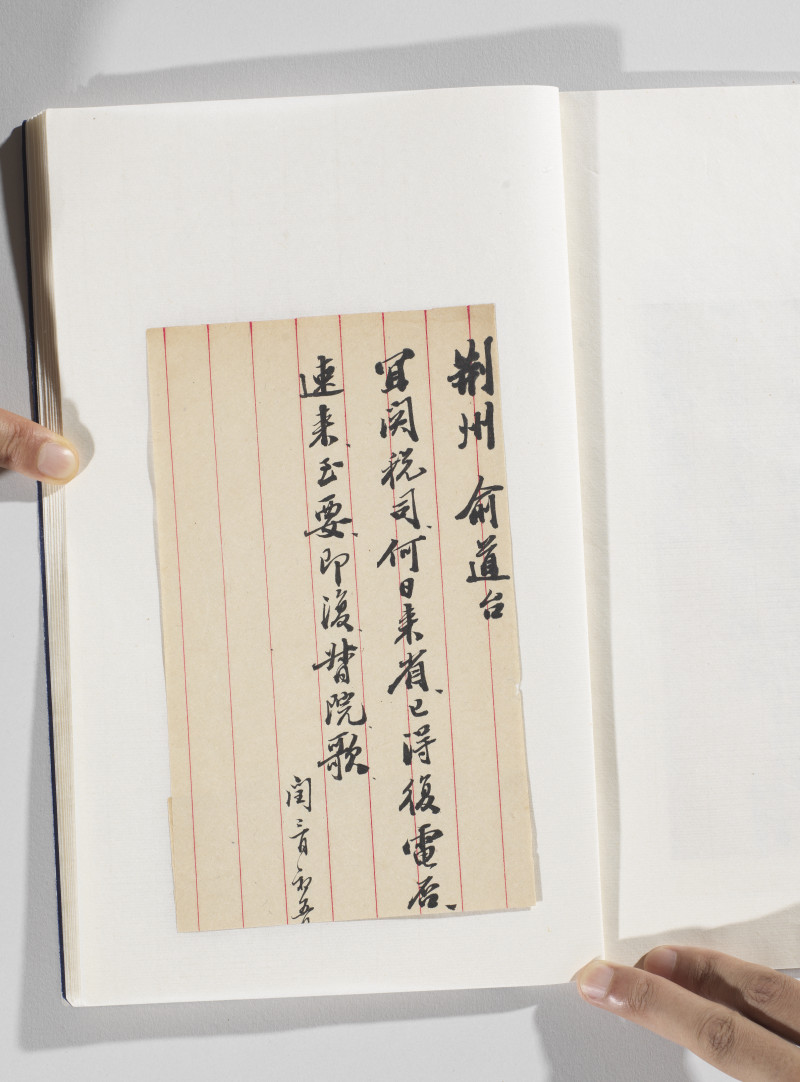 荆州 俞道台
冝関税司、何日来省、已得復電否、
速来、至要、即復、督院歌
閏三月初五